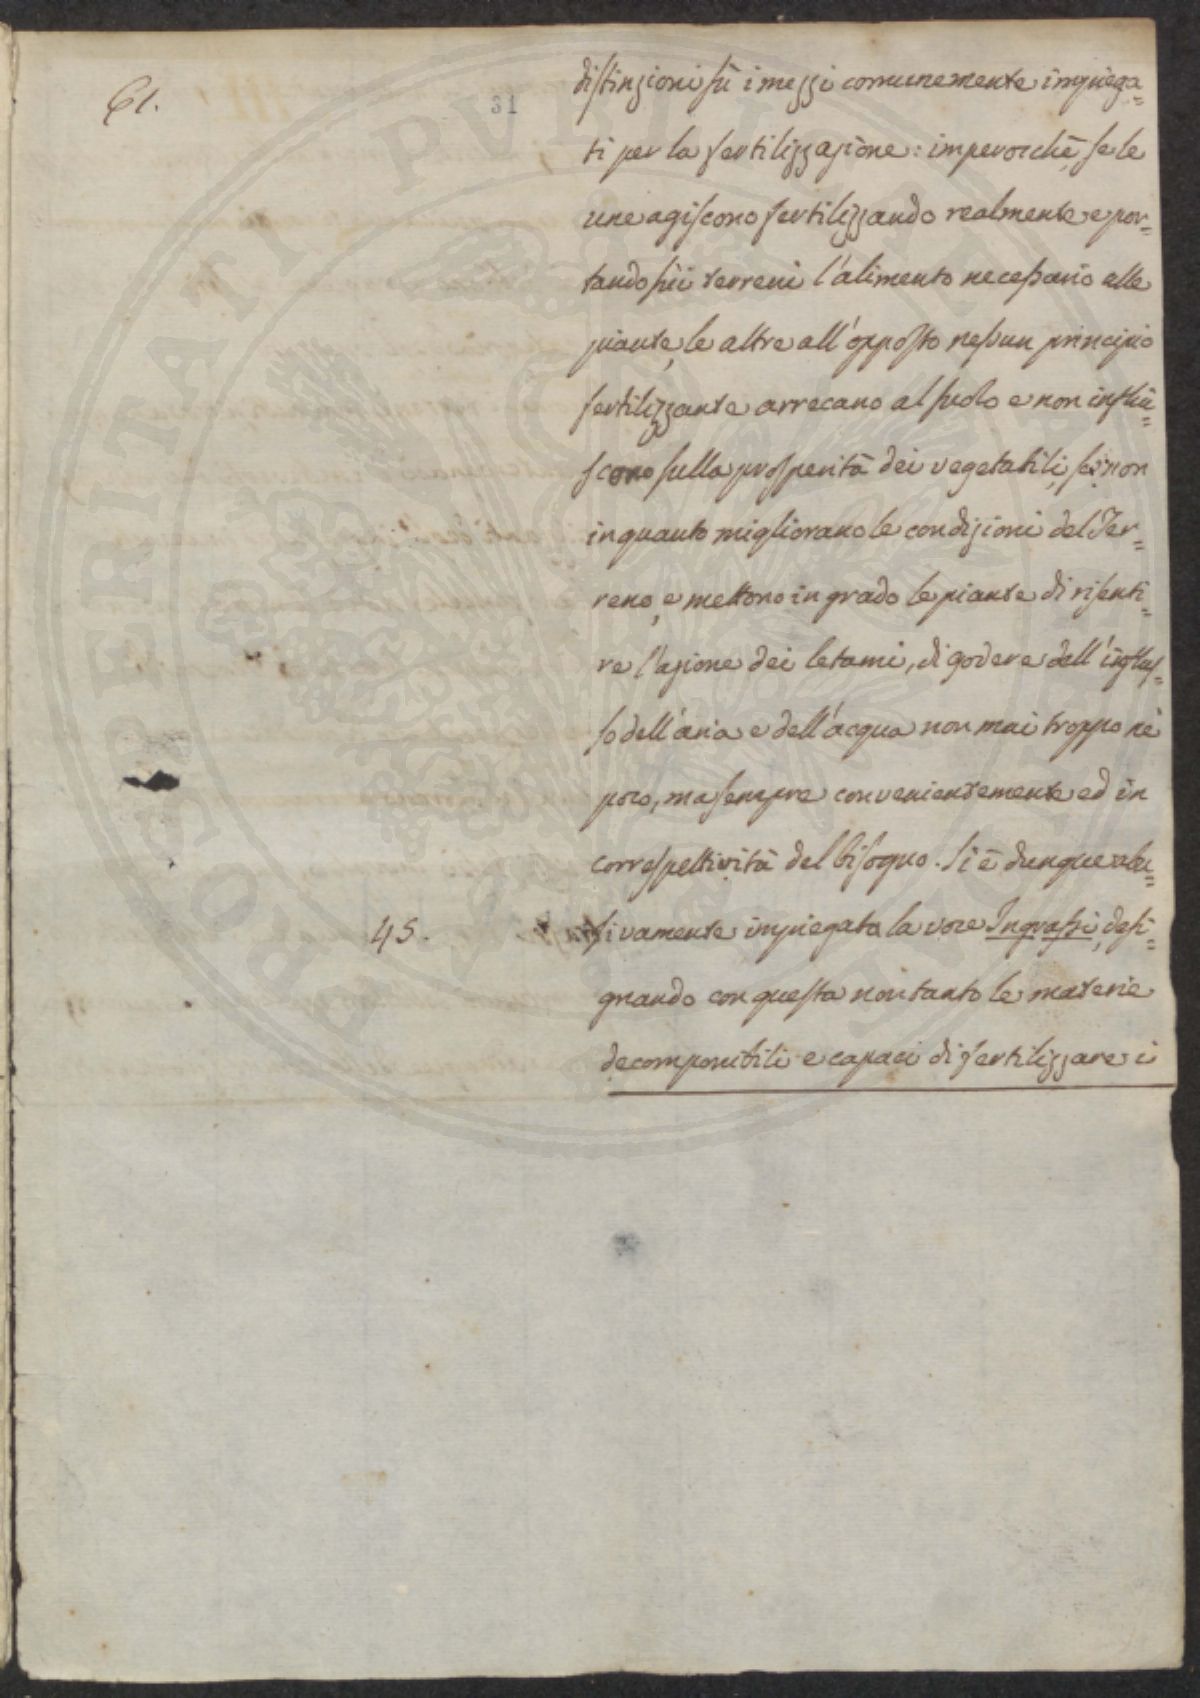 61.
31
distinzioni sù i mezzi comunemente impiega=
ti per la fertilizzazione: imperocchè, se le
une agiscono fertilizzando realmente e por=
tando sùi terreni l'alimento necessario alle
piante, le altre all'opposto nessun principio
fertilizzante arrecano al suolo e non influi=
scono sulla prosperità dei vegetabili, se non
in quanto migliorano le condizioni del Ter=
reno, e mettono in grado le piante di risenti=
re l'azione dei letami, di godere dell'influs=
so dell'aria e dell'acqua non mai troppo nè
poco, ma sempre convenientemente ed in
correspettività del bisogno. Si è dunque abu=
45.
sivamente impiegata la voce Ingrassi, desi=
gnando con questa non tanto le materie
decomponibili e capaci di fertilizzare i
PROSPERITATI PVBLICAE